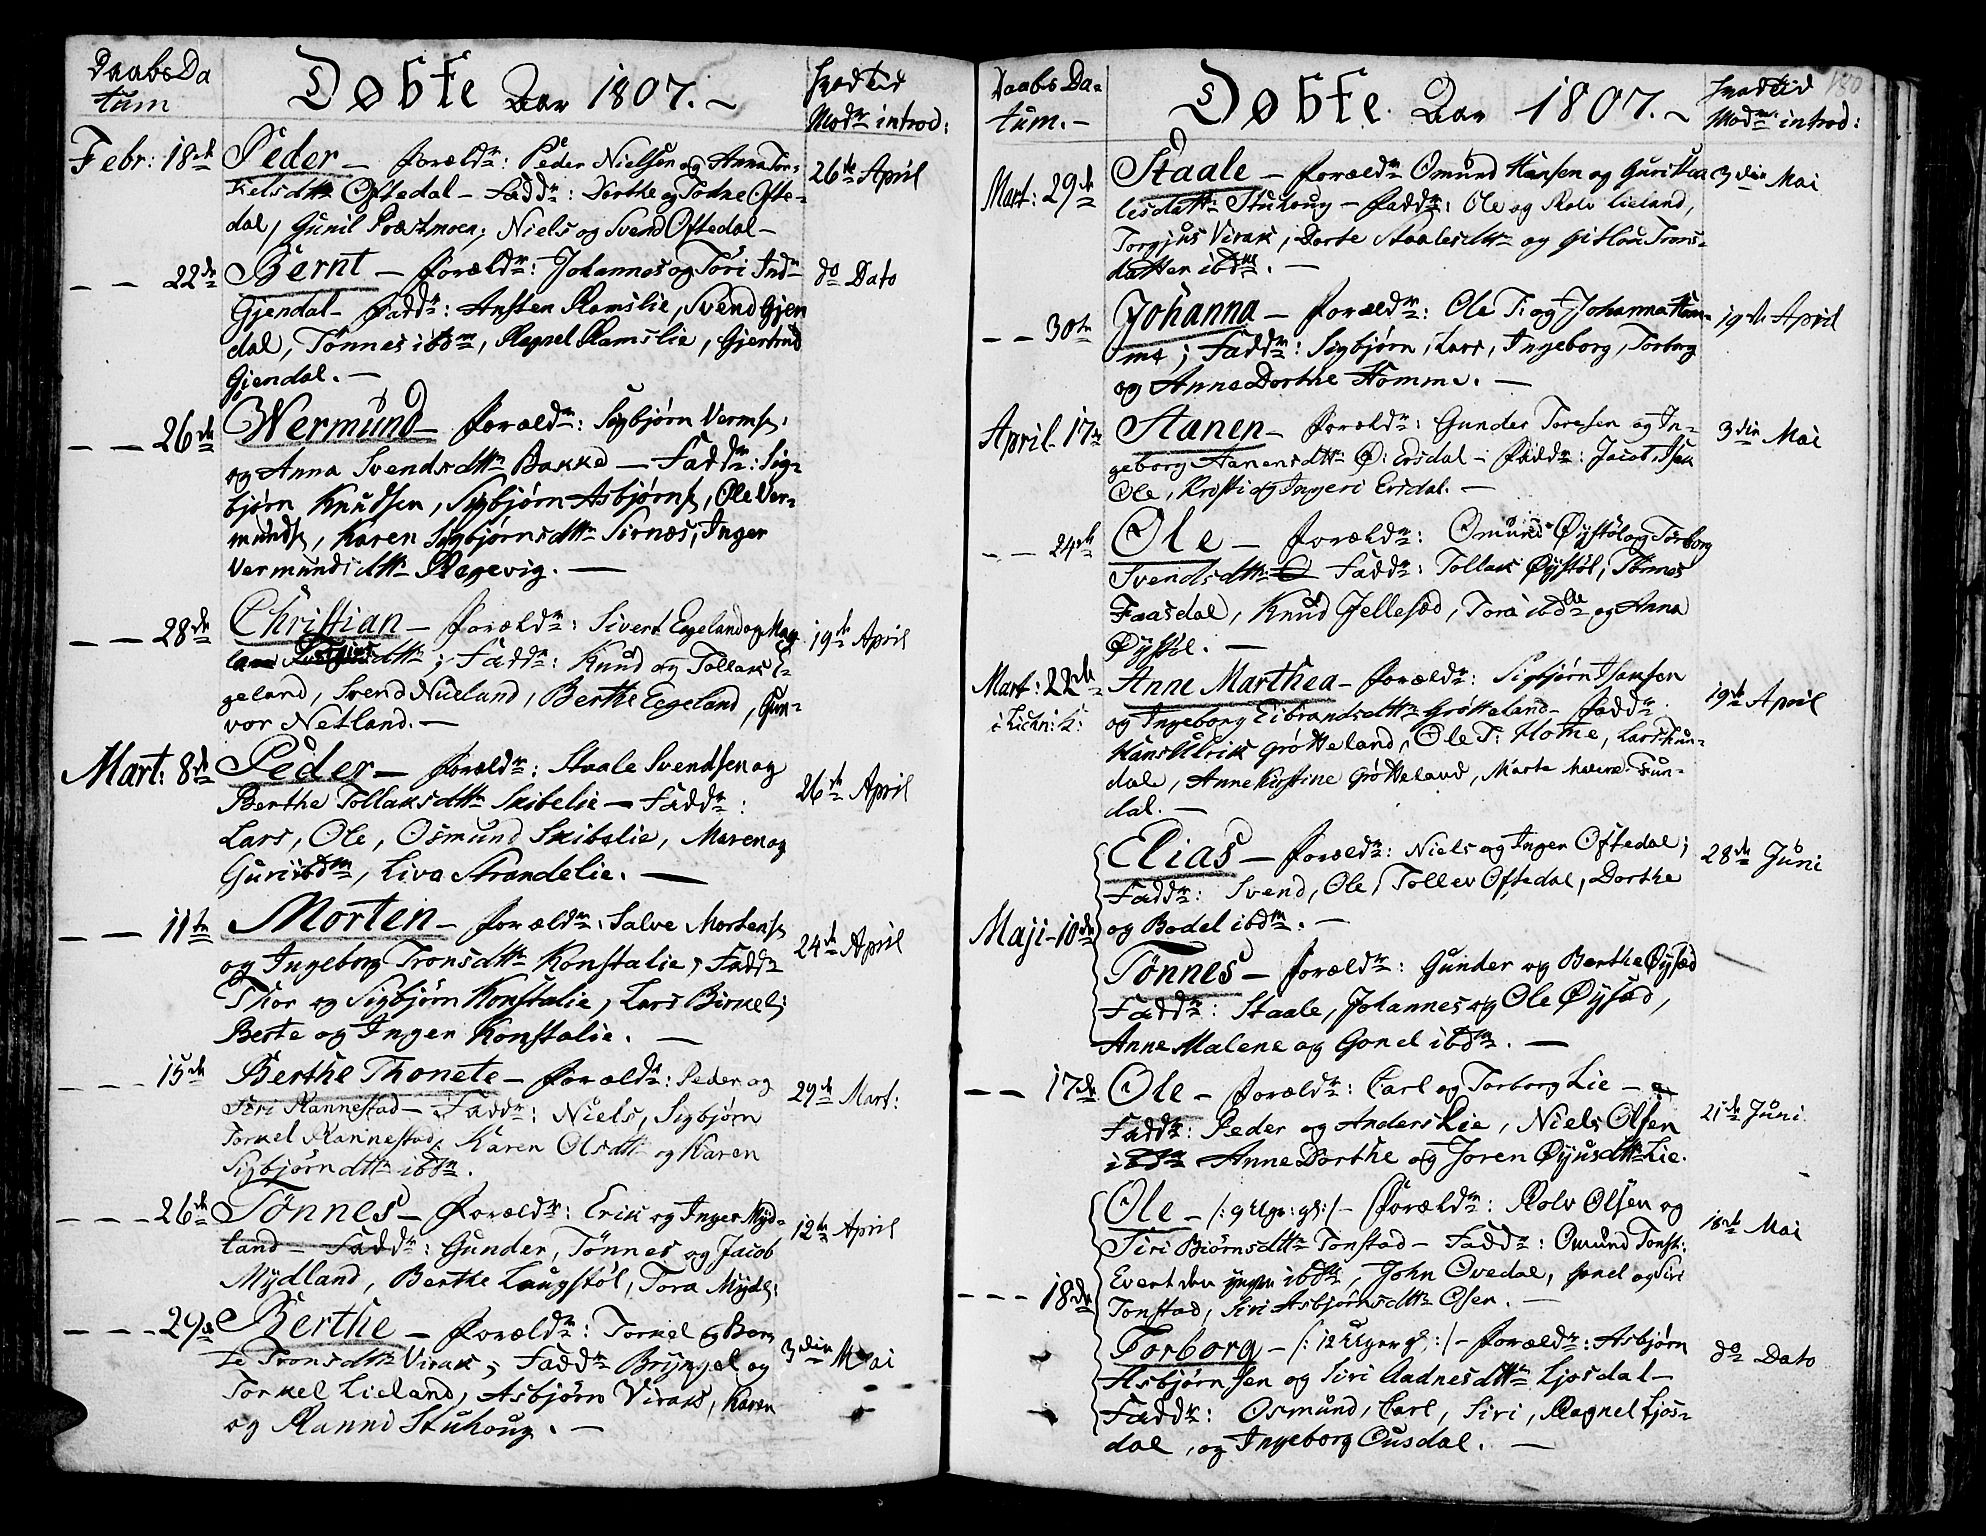 Daabs Da
tum
Døbte Aar 1807.~
hvad tid
Modr introd:
Febr: 18de Peder – Foræld: Peder Nielsen og Anna Tor-
kelsdttr Oftedal – Fadd: Dorthe og Todne Ofte-
dal, Gunil Præstmoen; Niels og Svend Oftedal –
26de April
– – 22de Bernt – Foræld: Johannes og Tori Ind-
Gjendal – Fadd: Austen Ramslie, Svend Gjen
dal, Tønnes ibdm, Ragnel Ramslie, Gjertrud
Gjendal. –
do Dato
– – 26de Wermund – Foræld: Sigbjørn Verms:
og Anna Svendsdttr Bakke – Fadd: Sig-
bjørn Knudsen, Sigbjørn Asbjørns, Ole Ver-
munds, Karen Sigbjørnsdttr Sirnæs, Inger
Vermundsdttr Regevig. –
– – 28de Christian – Foræld: Sivert Egeland og Mag
dttr; Fadd: Knud og Tollak E-
geland, Svend Nueland, Berthe Egeland, Gun-
vor Netland. –
19de April
Mart: 8de Peder – Foræld: Staale Svendsen og
Berthe Tollaksdttr Skibelie – Fadd:
Lars, Ole, Osmund Skibelie, Maren og
Guri ibdm, Liva Strandelie. –
26de April
– – 11te Morten – Foræld: Salve Mortens
og Ingeborg Tronsdttr Konstalie, Fadd
Thor og Sigbjørn Konstalie, Lars Birkel;
Berte og Inger Konstalie. –
24de April
– – – 15de Berthe Thonete – Foræld: Peder og
Siri Rannestad – Fadd: Niels, Sigbjørn
Torkel Rannestad, Karen Olsdttr og Karen
Sigbjørndttr ibdm.
29de Mart:
– – – 26de Tønnes – Foræld: Erik og Inger Myd-
land – Fadd: Gunder, Tønnes og Jacob
Mydland, Berthe Laugstøl, Tora Mydl:
12te April
– – – 29de Berthe – Foræld: Torkel og Ber
te Tronsdttr Virak; Fadd Bryngel og
Torkel Lieland, Asbjørn Virak, Karen
og Ranni Stuhoug. –
3die Mai
Daabs Da-
tum. –
Døbte Aar 1807.~
hvad tid
Modr introd:
180
Mart: 29de Staale – Foræld Omund Hansen og Guri Staa
lesdattr Stuhoug – Fadd: Ole og Rolv Lieland,
Torgjus Virak; Dorte Staalesdttr og Gitlou Trons-
datter ibdm. –
3die Mai
– – 30te Johanna – Foræld: Ole T. og Johanna Hom-
me; Fadd: Sigbjørn, Lars, Ingeborg, Torborg
og Anne Dorthe Homme. –
19de April
April 17de Aanen – Foræld: Gunder Toresen og In-
geborg Aanensdttr Ø: Ersdal – Fadd: Jacob, Isak
Ole, Kristi og Ingeri Ersdal. –
3die Mai
– – 24de Ole – Foræld: Omund Øystøl og Torborg
Svendsdttr Fadd: Tollak Øystøl, Tønnes
Faasdal, Knud Jellesæd, Tora ibdm og Anna
Øystøl. –
Mart: 22de Anne Marthea – Foræld: Sigbjørn Hansen
i Lichn: K: og Ingeborg Eibrandsdttr Grøtteland – Fadd
Hans Ulrik Grøtteland, Ole T: Home, Lars Fun-
dal, Anne Kistine Grøtteland, Marte Malene Fun-
dal. –
19de April
Elias – Foræld: Niels og Inger Oftedal;
Fadd: Svend, Ole, Tollev Oftedal, Dorthe
og Bodel ibdm. –
28de Juni
Maji – 10de
Tønnes – Foræld: Gunder og Berthe Øysæd
Fadd: Staale, Johannes og Ole Øysæd,
Anne Malene og Gonel ibdm. –
– – 17de Ole – Foræld: Carl og Torborg Lie –
Fadd: Peder og Anders Lie, Niels Olsen
ibdm Anne Dorthe og Joren Øyusdttr Lie.
21de Juni
Ole – /: 9 Uger: gl: /– Foræld: Rolv Olsen og
Siri Biørnsdttr Tonstad – Fadd: Omund Tonst:
Evert den yngre ibdm, John Ovedal, Gonel og Siri
Tonstad, Siri Asbjørnsdttr Osen. –
18de Mai
– – – 18de
Torborg – /: 12 Uger gl: /– Foræld: Asbjørn
Asbjørnsen og Siri Aadnesdttr Ljosdal –
Fadd: Osmund, Carl, Siri, Ragnel Ljos-
dal, og Ingeborg Ousdal. –
do Dato